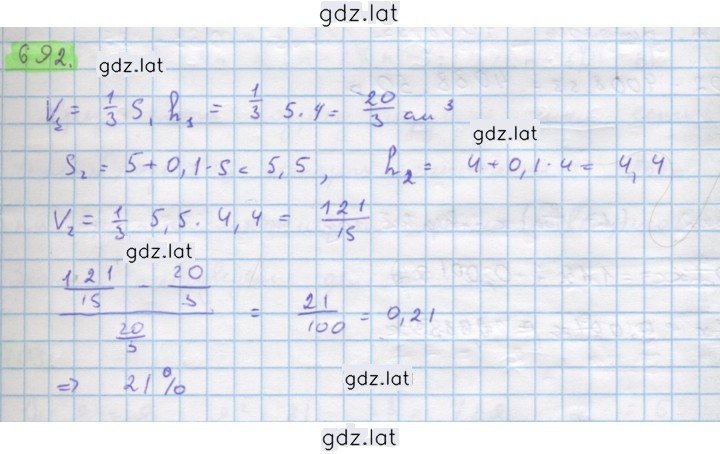 gdz.lat
692.
gdz.lat
V₁ = 1/3 S₁ h₁ = 1/3 5·4 = 20/3 см³
gdz.lat
S₂ = 5+0,1·5 = 5,5, h₂ = 4+0,1·4 = 4,4
V₂ = 1/3 5,5·4,4 = 121/15
gdz.lat
(121/15 - 20/3) / (20/3) = 21/100 = 0,21
=> 21%
gdz.lat
gdz.lat